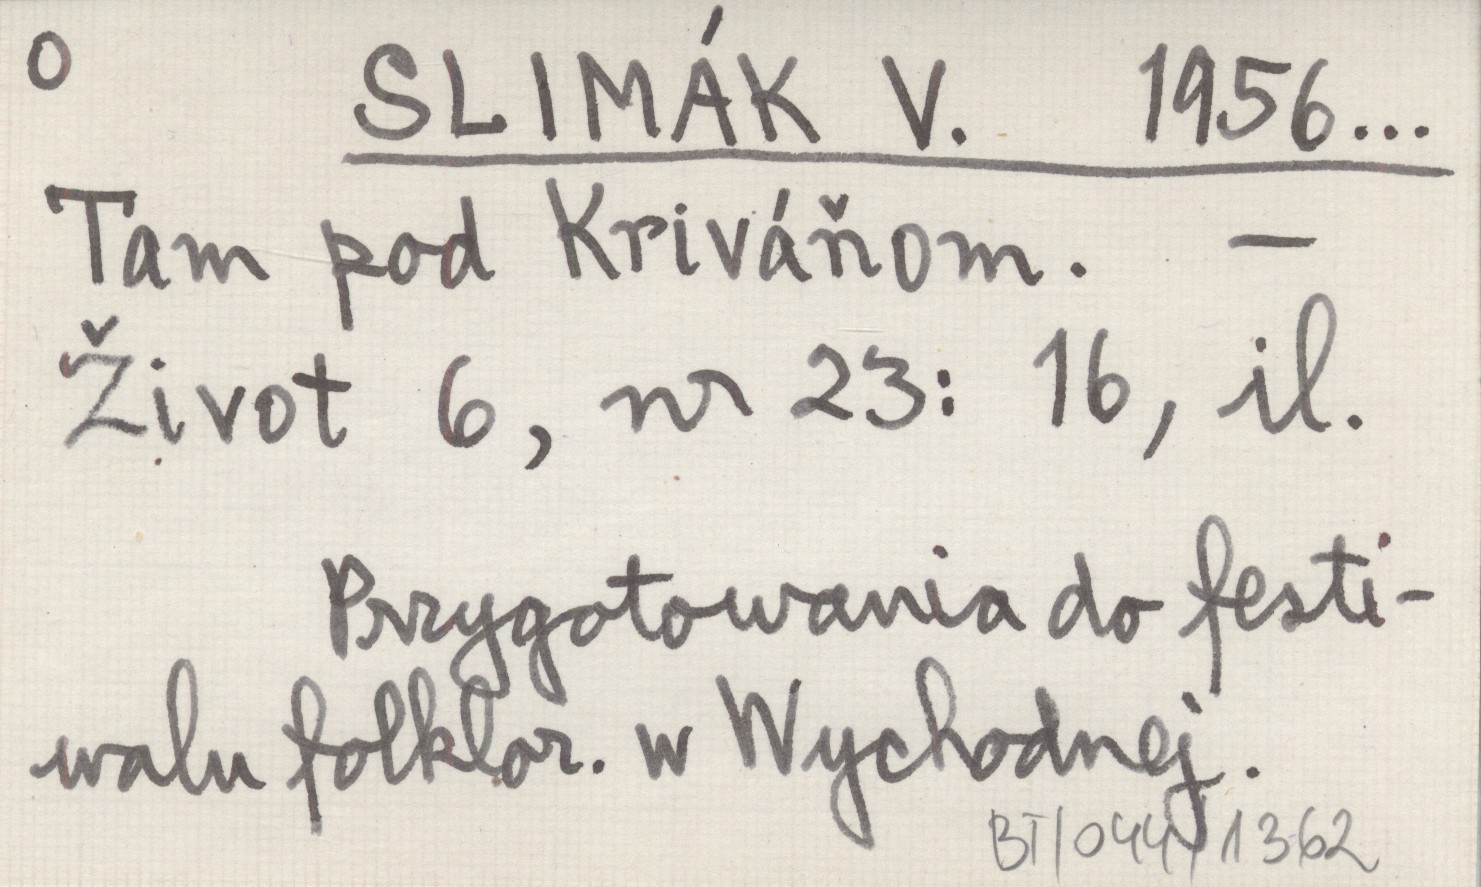 O SLIMÁK V. 1956...
Tam pod Kriváňom. —
Život 6, nr 23: 16, il.
Przygotowania do festi-
walu folklor. w Wychodnej.
BT/044/1362